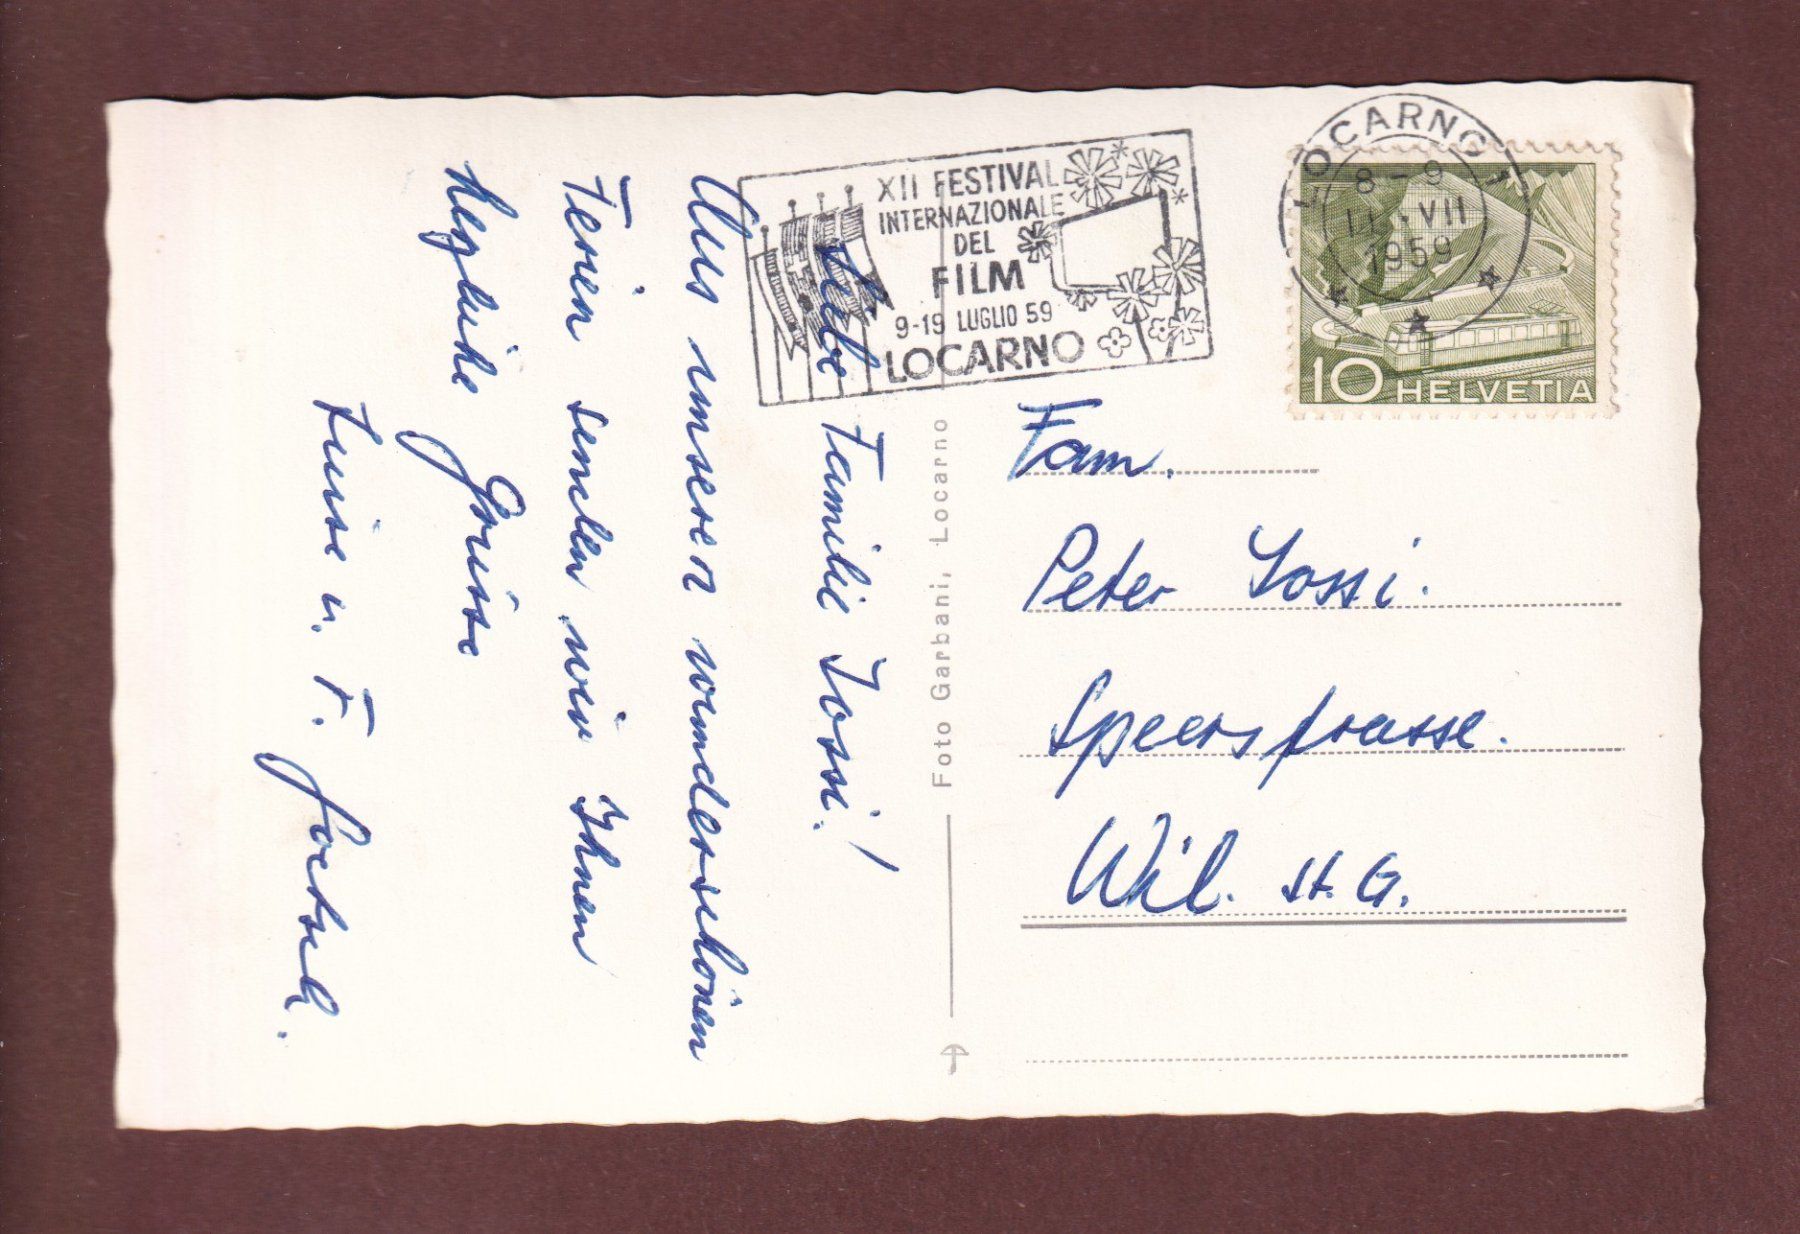 XII FESTIVAL
INTERNAZIONALE
DEL
FILM
9-19 LUGLIO 59
LOCARNO
LOCARNO 1
8-9
VII
1959
10 HELVETIA
Liebe Familie Jossi!
Aus unseren wunderschönen
Ferien senden wir Ihnen
herzliche Grüsse
Luise u. F.
Foto Garbani, Locarno
Fam.
Peter Jossi.
Speerstrasse.
Wil. St. G.